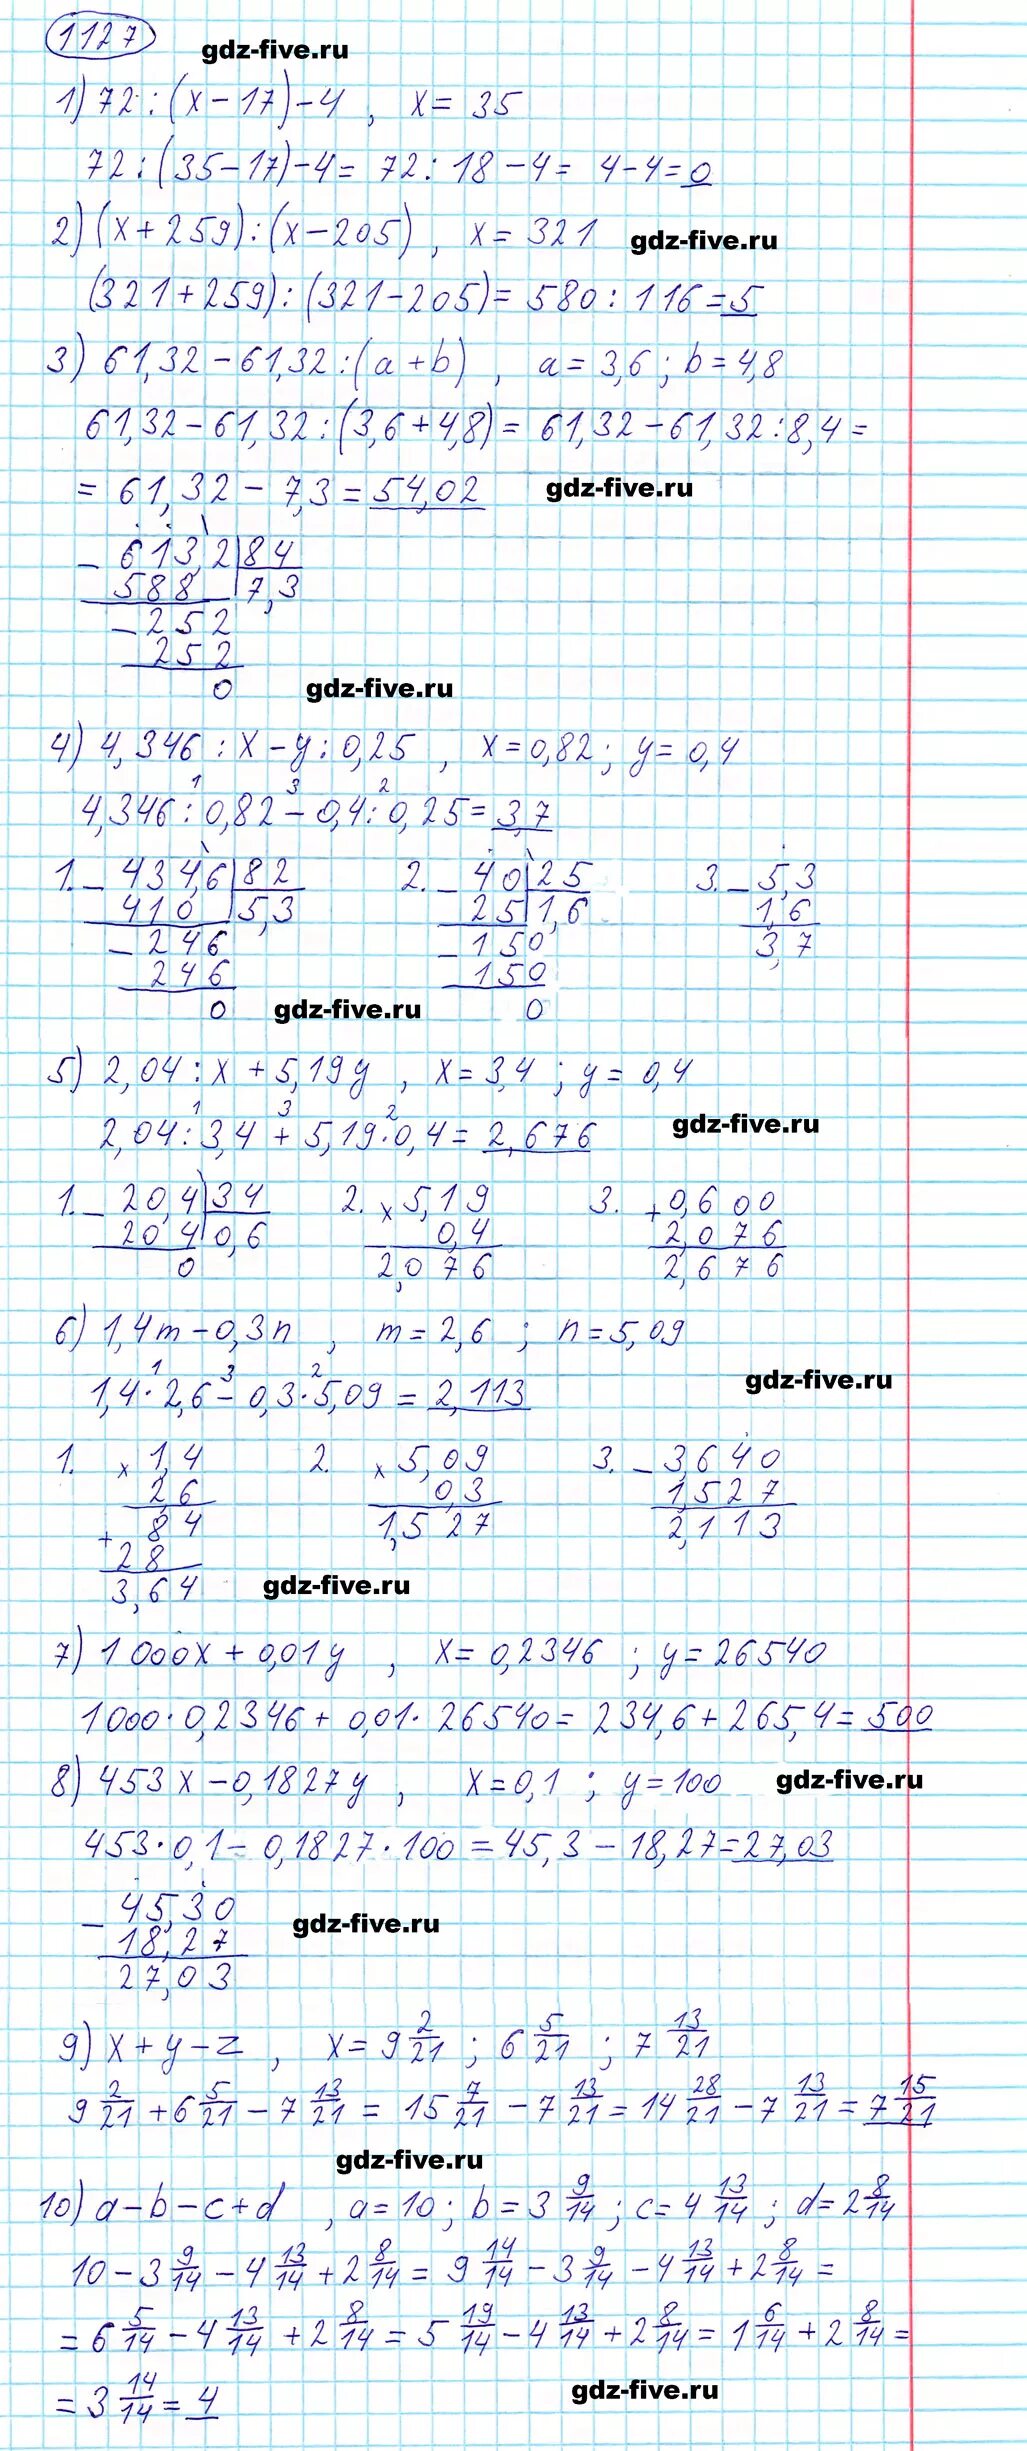 1127
gdz-five.ru
1) 72 : (x − 17) − 4 , x = 35
72 : (35 − 17) − 4 = 72 : 18 − 4 = 4 − 4 = 0
2) (x + 259) : (x − 205) , x = 321 gdz-five.ru
(321 + 259) : (321 − 205) = 580 : 116 = 5
3) 61,32 − 61,32 : (a + b) , a = 3,6 ; b = 4,8
61,32 − 61,32 : (3,6 + 4,8) = 61,32 − 61,32 : 8,4 =
= 61,32 − 7,3 = 54,02 gdz-five.ru
− 613,2 | 84
588 | 7,3
− 252
252
0 gdz-five.ru
4) 4,346 : x − y : 0,25 , x = 0,82 ; y = 0,4
1 3 2
4,346 : 0,82 − 0,4 : 0,25 = 3,7
1. − 434,6 | 82 2. − 40 | 25 3. − 5,3
410 | 5,3 25 | 1,6 1,6
− 246 − 150 3,7
246 150
0 gdz-five.ru 0
5) 2,04 : x + 5,19y , x = 3,4 ; y = 0,4
1 3 2 gdz-five.ru
2,04 : 3,4 + 5,19 · 0,4 = 2,676
1. − 20,4 | 34 2. × 5,19 3. + 0,600
20 4 | 0,6 0,4 2,076
0 2,076 2,676
6) 1,4m − 0,3n , m = 2,6 ; n = 5,09
1 3 2 gdz-five.ru
1,4 · 2,6 − 0,3 · 5,09 = 2,113
1. × 1,4 2. × 5,09 3. − 3,640
2,6 0,3 1,527
+ 84 1,527 2,113
28
3,64 gdz-five.ru
7) 1000x + 0,01y , x = 0,2346 ; y = 26540
1000 · 0,2346 + 0,01 · 26540 = 234,6 + 265,4 = 500
8) 453x − 0,1827y , x = 0,1 ; y = 100 gdz-five.ru
453 · 0,1 − 0,1827 · 100 = 45,3 − 18,27 = 27,03
− 45,30
18,27 gdz-five.ru
27,03
9) x + y − z , x = 9 2/21 ; 6 5/21 ; 7 13/21
9 2/21 + 6 5/21 − 7 13/21 = 15 7/21 − 7 13/21 = 14 28/21 − 7 13/21 = 7 15/21
gdz-five.ru
10) a − b − c + d , a = 10 ; b = 3 9/14 ; c = 4 13/14 ; d = 2 8/14
10 − 3 9/14 − 4 13/14 + 2 8/14 = 9 14/14 − 3 9/14 − 4 13/14 + 2 8/14 =
= 6 5/14 − 4 13/14 + 2 8/14 = 5 19/14 − 4 13/14 + 2 8/14 = 1 6/14 + 2 8/14 =
= 3 14/14 = 4 gdz-five.ru